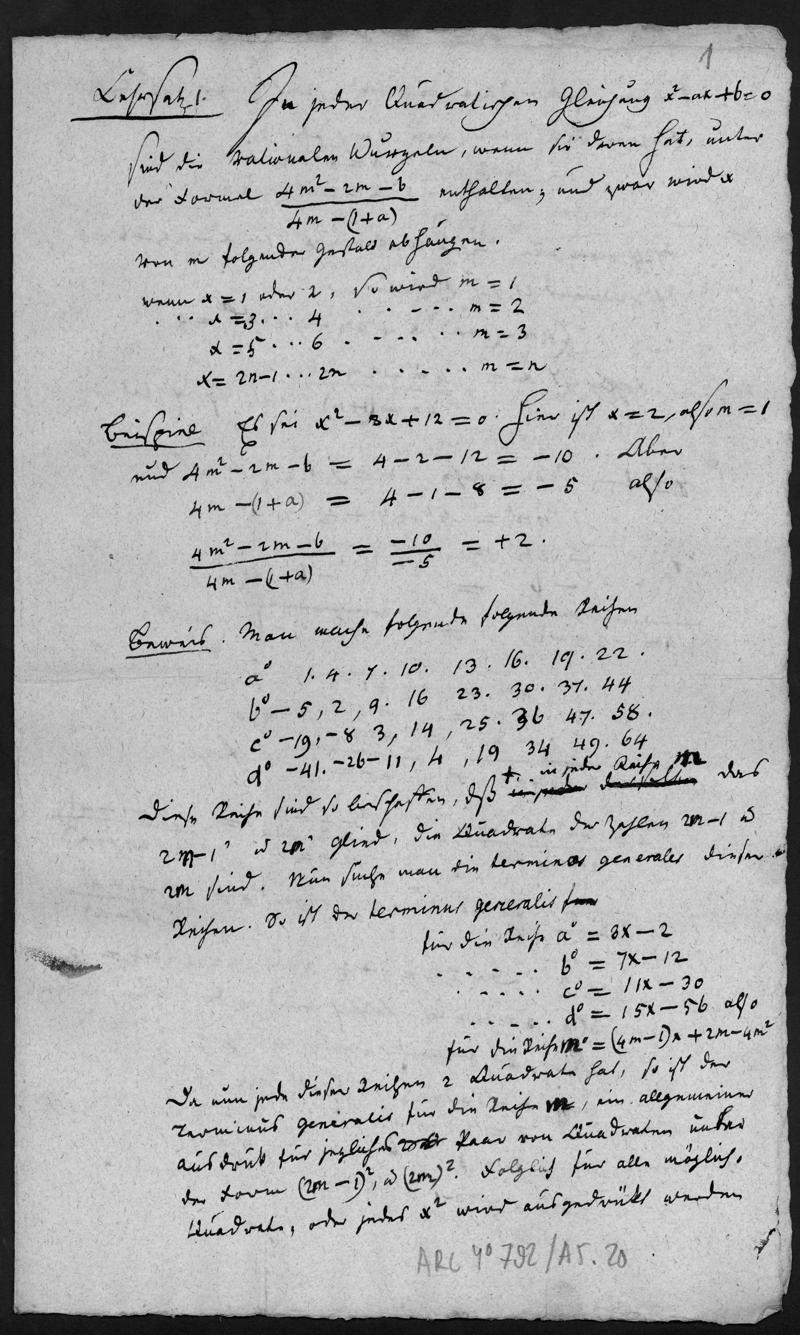 1
Lehrsatz 1. In jeder Quadratischen Gleichung x² − ax + b = 0
sind die rationalen Wurzeln, wenn sie deren hat, unter
der Formel (4m² − 2m − b)/(4m − (1+a)) enthalten; und zwar wird x
von m folgender Gestalt abhängen.
wenn x = 1 oder 2, so wird m = 1
. . . x = 3 . . . 4 . . - - . . m = 2
x = 5 . . . 6 . - . - . . . m = 3
x = 2n−1 . . . 2n . . . . . m = n
Beispiel Es sei x² − 8x + 12 = 0. Hier ist x = 2, also m = 1
und 4m² − 2m − b = 4 − 2 − 12 = −10. Aber
4m − (1+a) = 4 − 1 − 8 = −5 also
(4m² − 2m − b)/(4m − (1+a)) = −10/−5 = +2.
Beweis. Man mache folgende folgende Reihen
a° 1. 4. 7. 10. 13. 16. 19. 22.
b° − 5, 2, 9. 16 23. 30. 37. 44
c° −19, −8 3, 14, 25. 36 47. 58.
d° −41. −26 −11, 4, 19 34 49. 64
Diese Reihe sind so beschaffen, daß in jeder Reihe m das
2m−1° u 2m° Glied, die Quadrate der Zahlen 2m−1 u
2m sind. Nun suche man die terminos generales dieser
Reihen. So ist der terminus generalis
für die Reihe a° = 3x − 2
. . . . . . b° = 7x − 12
. . . . . c° = 11x − 30
. . . . . d° = 15x − 56 also
für die Reihe m° = (4m−1)x + 2m − 4m²
Da nun jede dieser Reihen 2 Quadrate hat, so ist der
terminus generalis für die Reihe m, ein allgemeiner
Ausdruk für jegliches Paar von Quadraten unter
der Form (2m−1)², u (2m)². Folglich für alle mögliche
Quadrate, oder jedes x² wird ausgedrükt werden
ARC 4° 792/A5.20